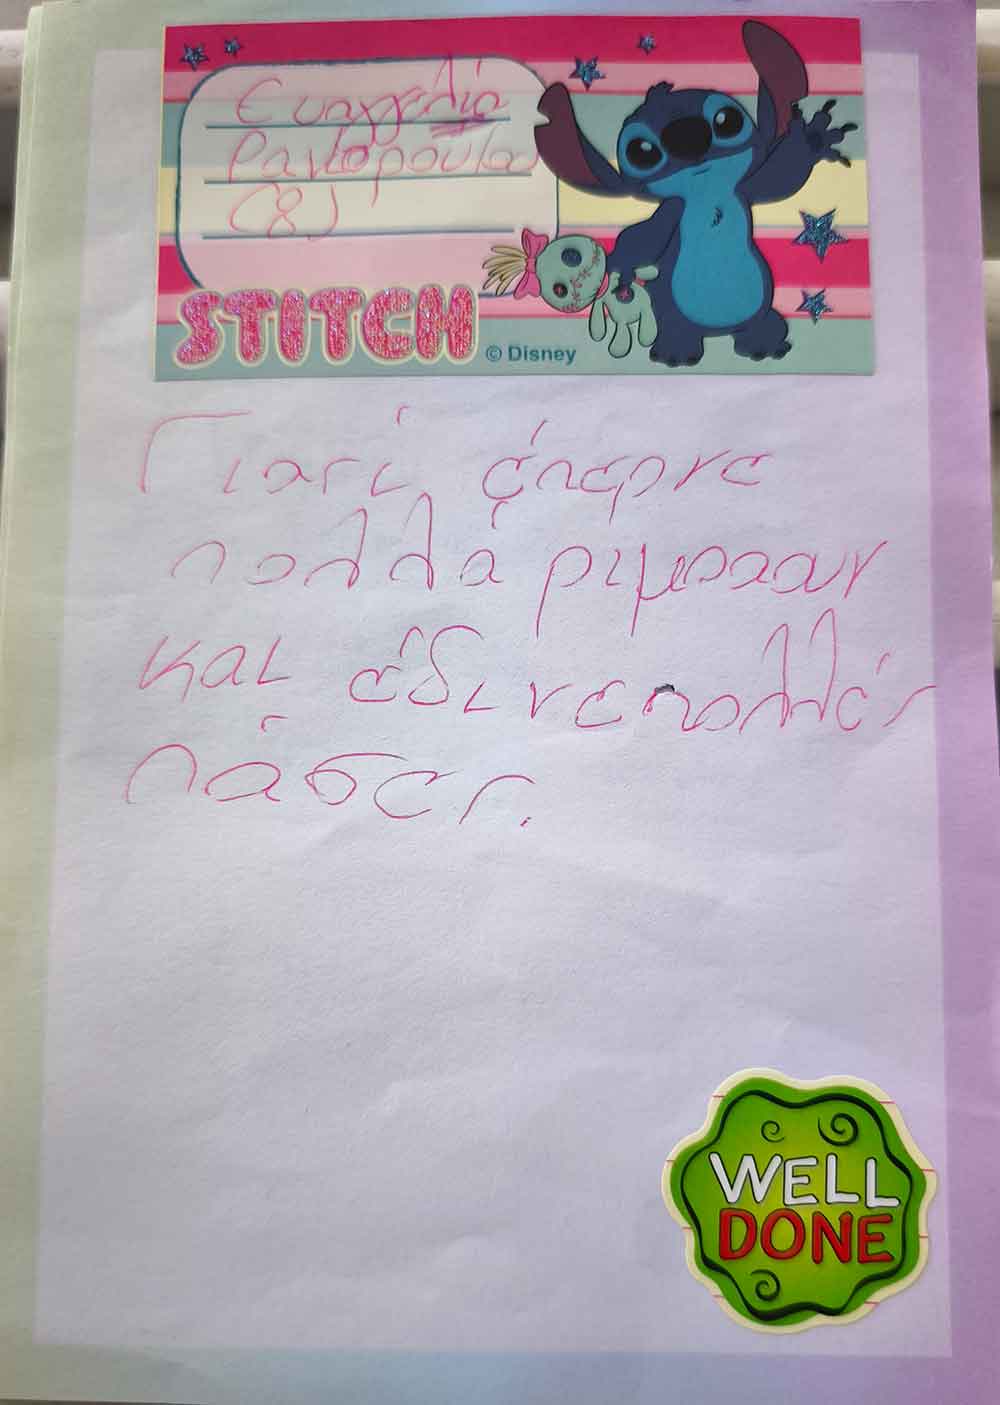 Ευαγγελία
Ραγκοπούλου
(8)
STITCH
© Disney
Γιατί έπερνε
πολλά ριμπαουν
και έδινε πολλές
πάσες.
WELL
DONE